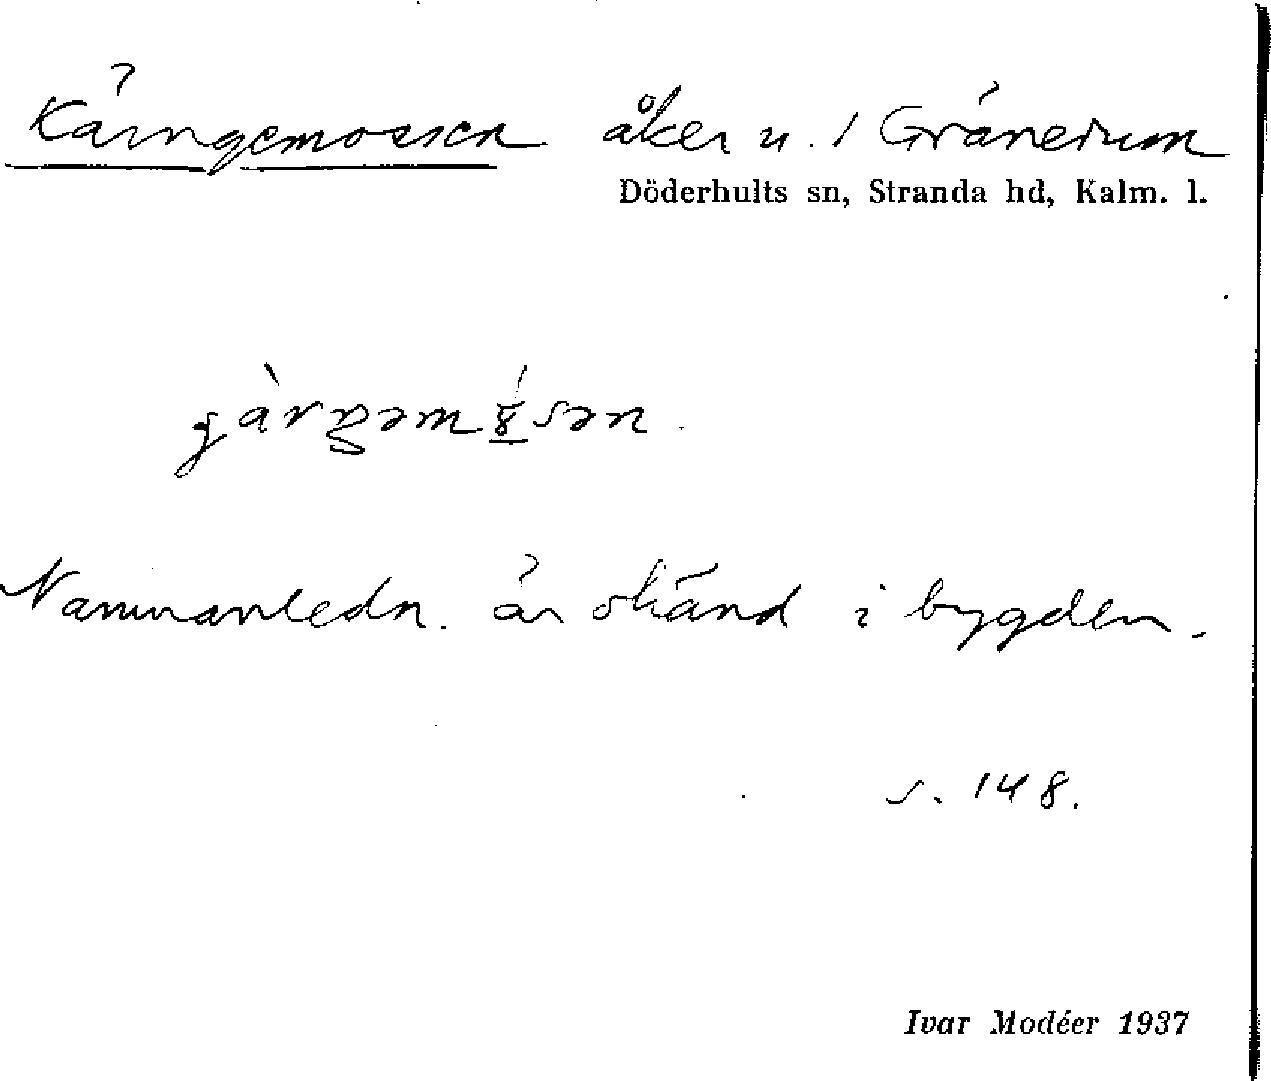 Kärngemossen åker u. 1 Gränerum
Döderhults sn, Stranda hd, Kalm. l.
Namnanledn. är okänd i bygden.
s. 148.
Ivar Modéer 1937